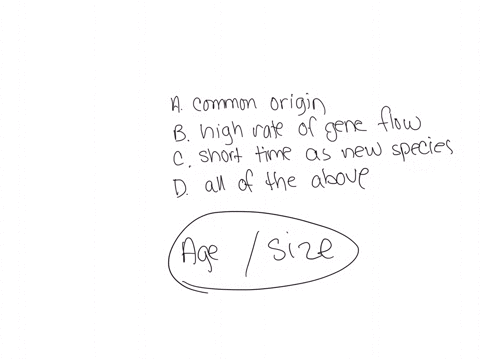 A. common origin
B. high rate of gene flow
C. short time as new species
D. all of the above
Age / Size